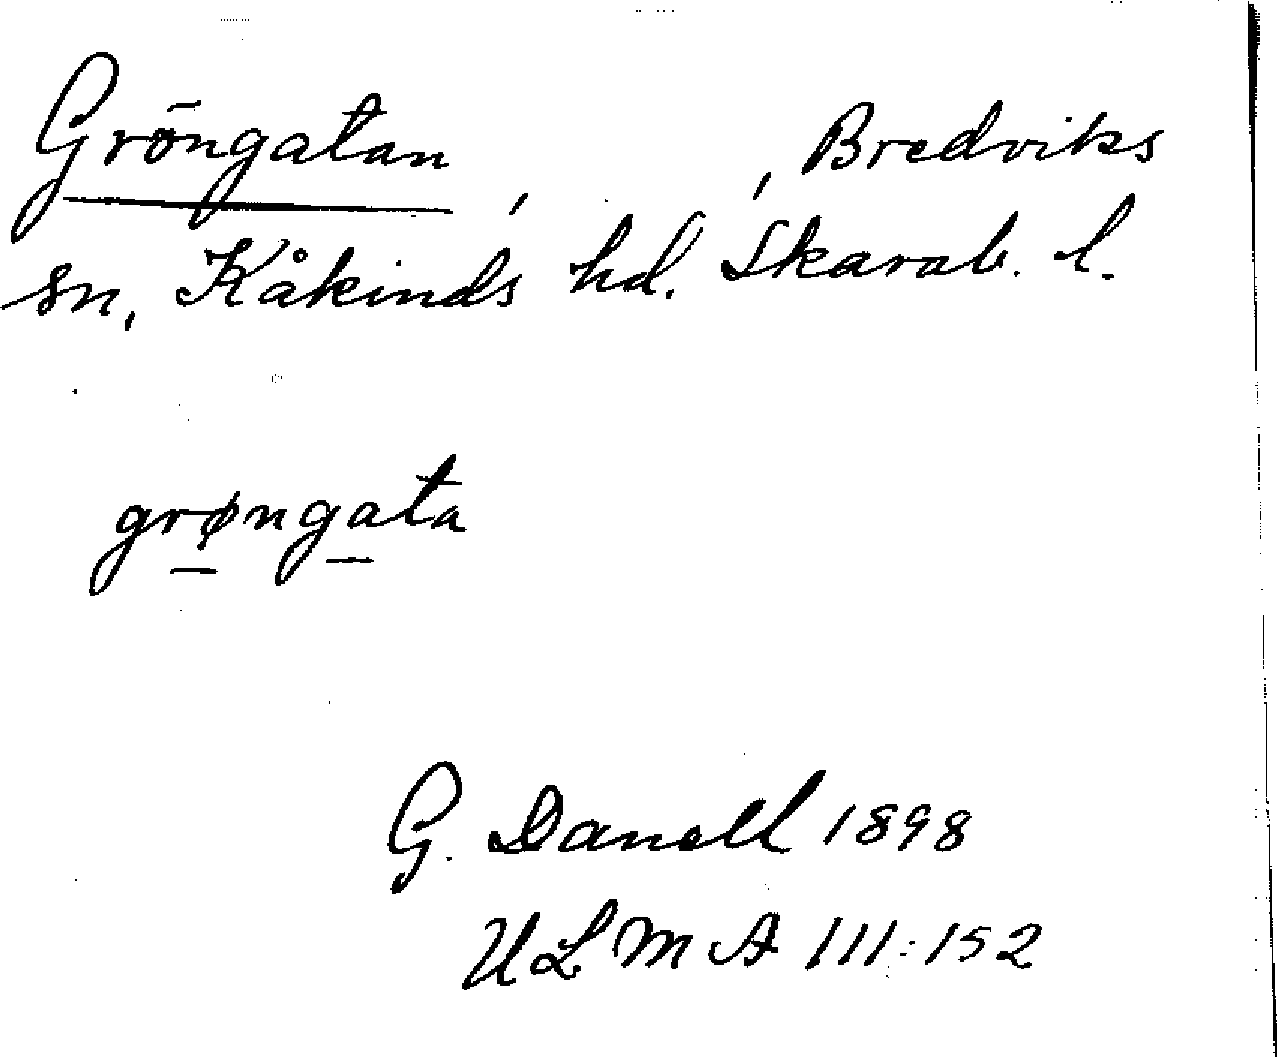 Gröngatan, , Bredviks
sn, Kåkinds hd. Skarab. l.
grøngata
G. Danell 1898
ULMA 111:152